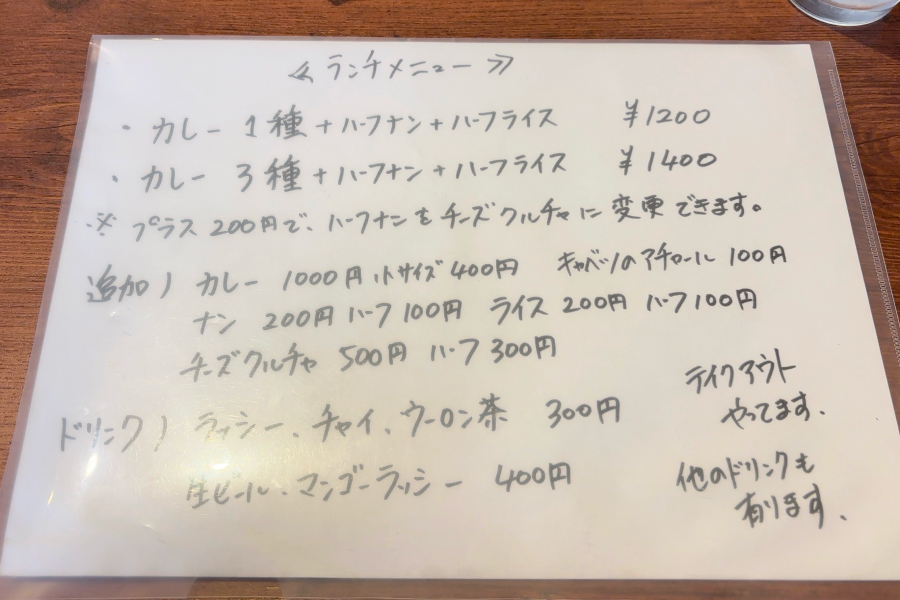 ≪ ランチメニュー ≫
・カレー 1種+ハーフナン+ハーフライス ¥1200
・カレー 3種+ハーフナン+ハーフライス ¥1400
※プラス200円で、ハーフナンをチーズクルチャに変更できます。
追加) カレー 1000円 小サイズ 400円 キャベツのアチャール 100円
ナン 200円 ハーフ 100円 ライス 200円 ハーフ100円
チーズクルチャ 500円 ハーフ 300円
テイクアウト
やってます.
ドリンク) ラッシー、チャイ、ウーロン茶 300円
生ビール、マンゴーラッシー 400円
他のドリンクも
有ります.